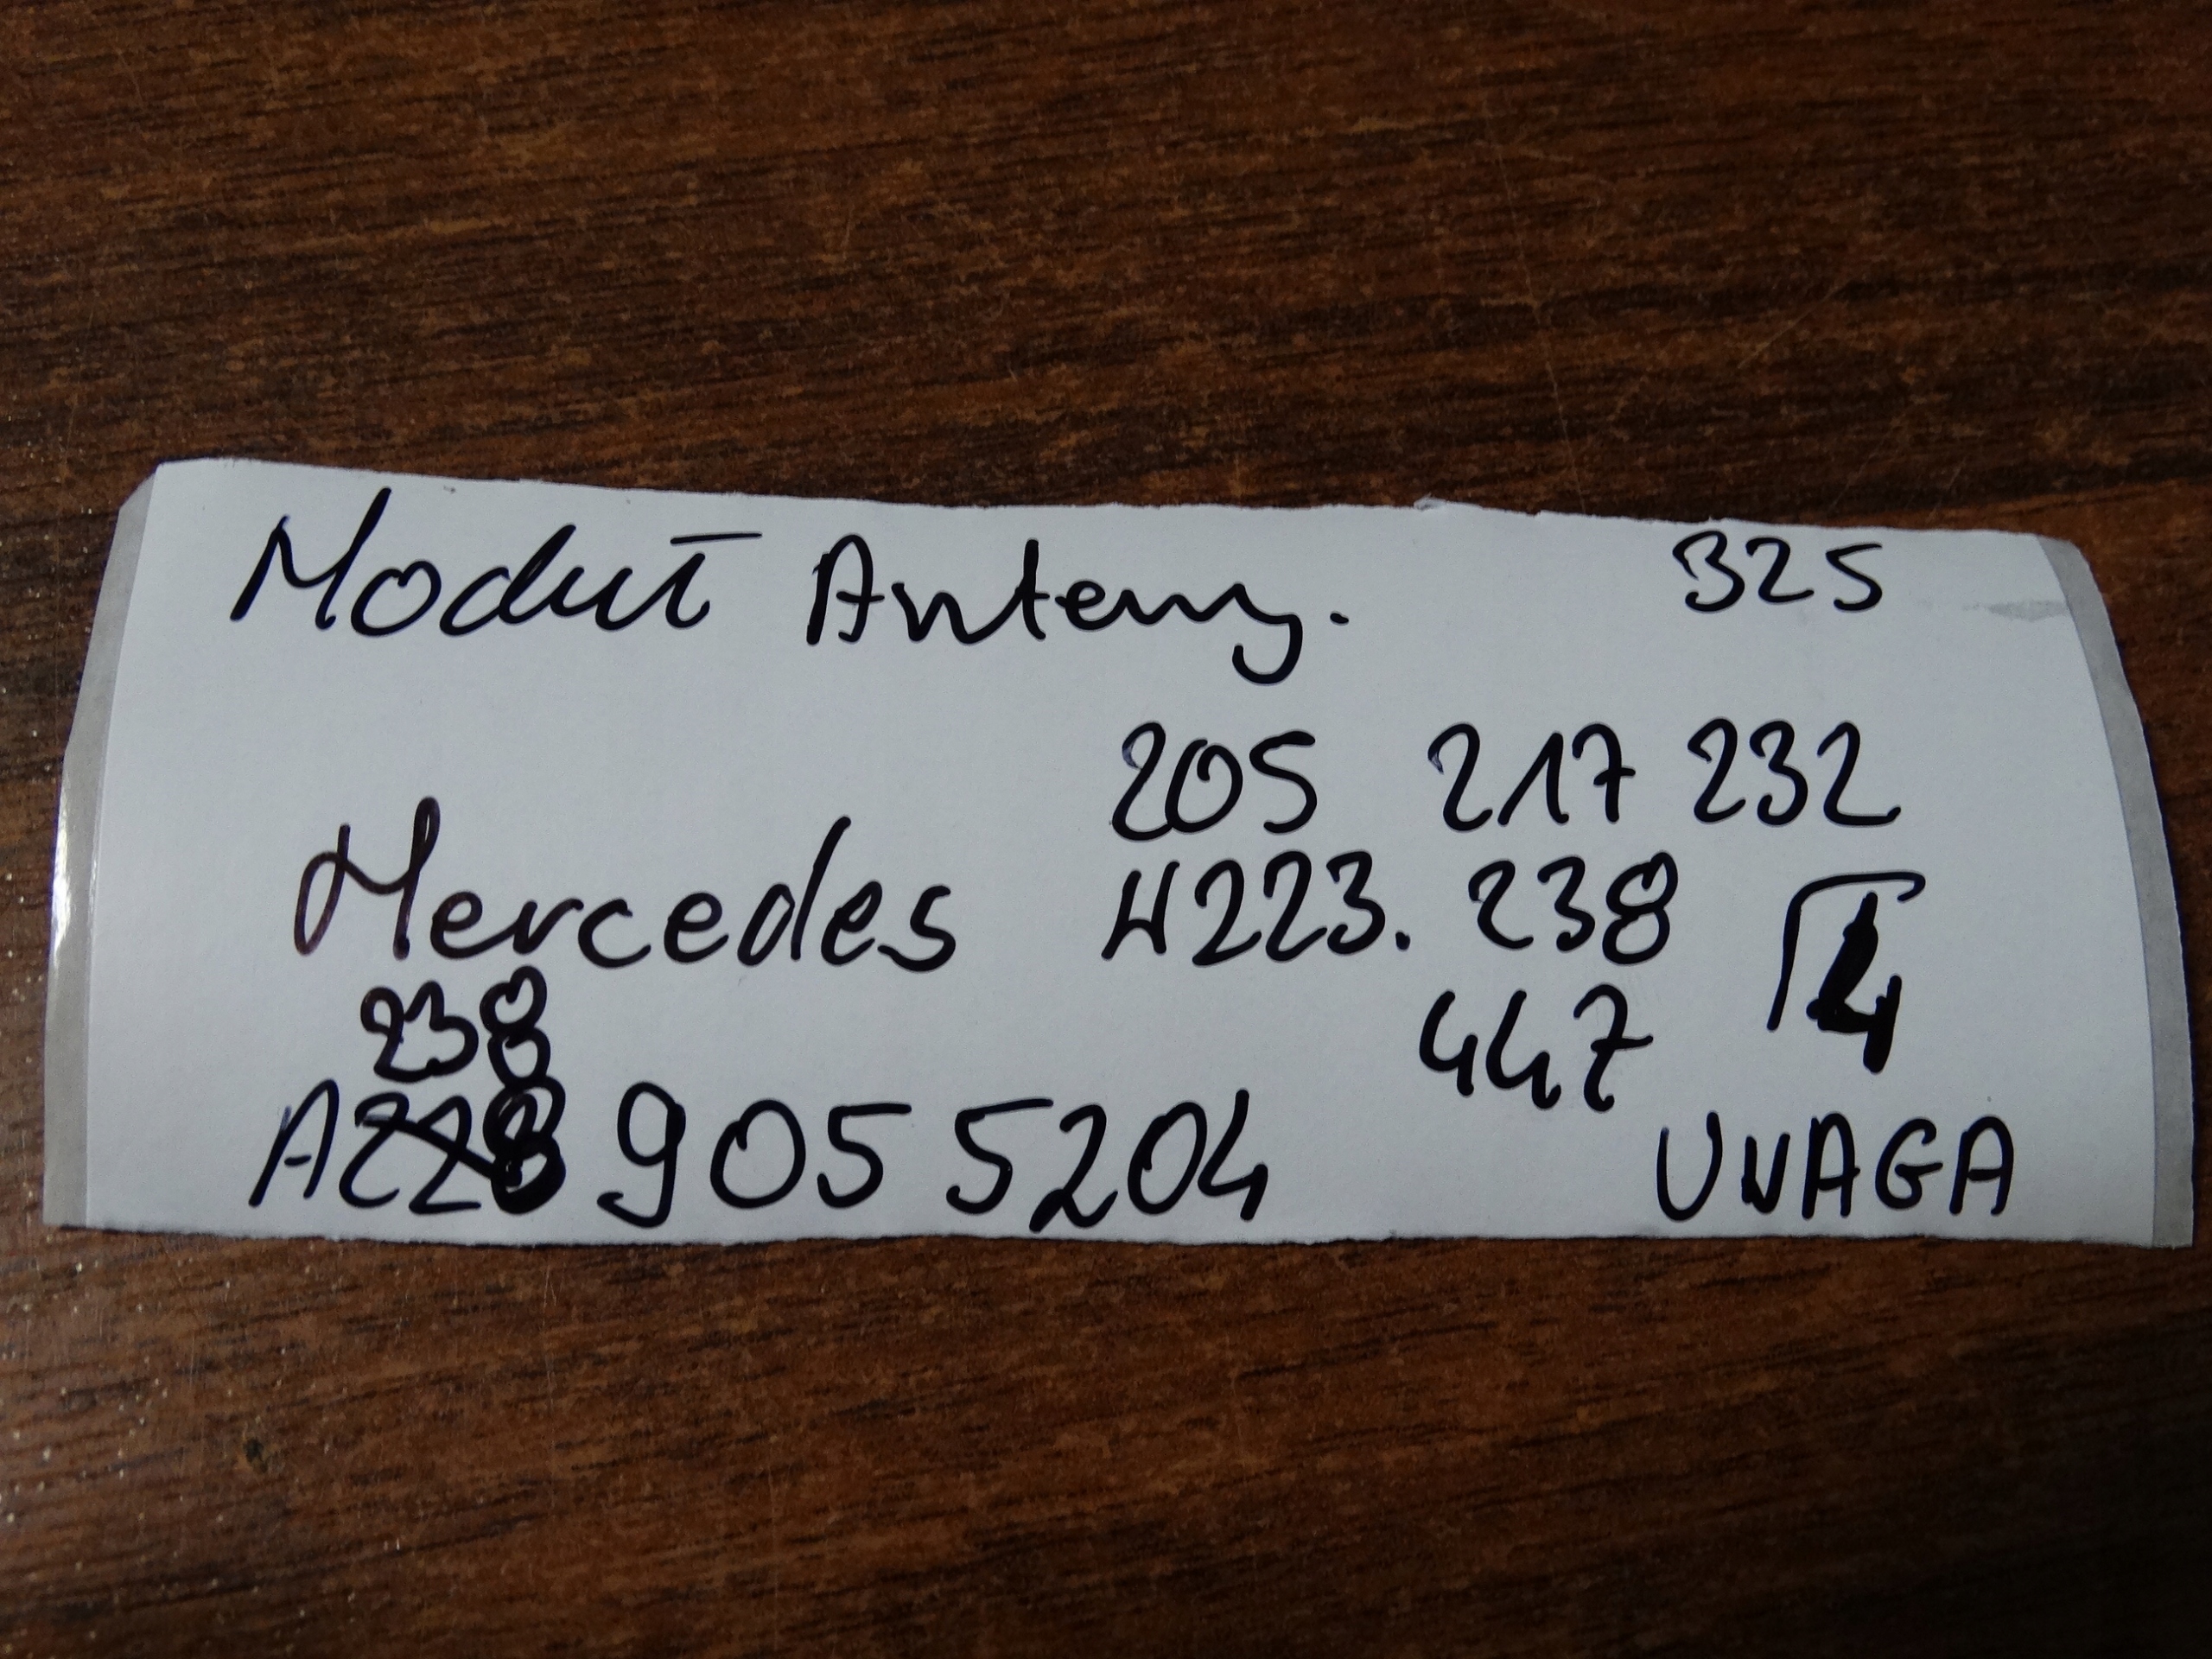 Moduł Anteny. 325
205 217 232
Mercedes W223. 238 4
238 447
A228 905 5204 UWAGA